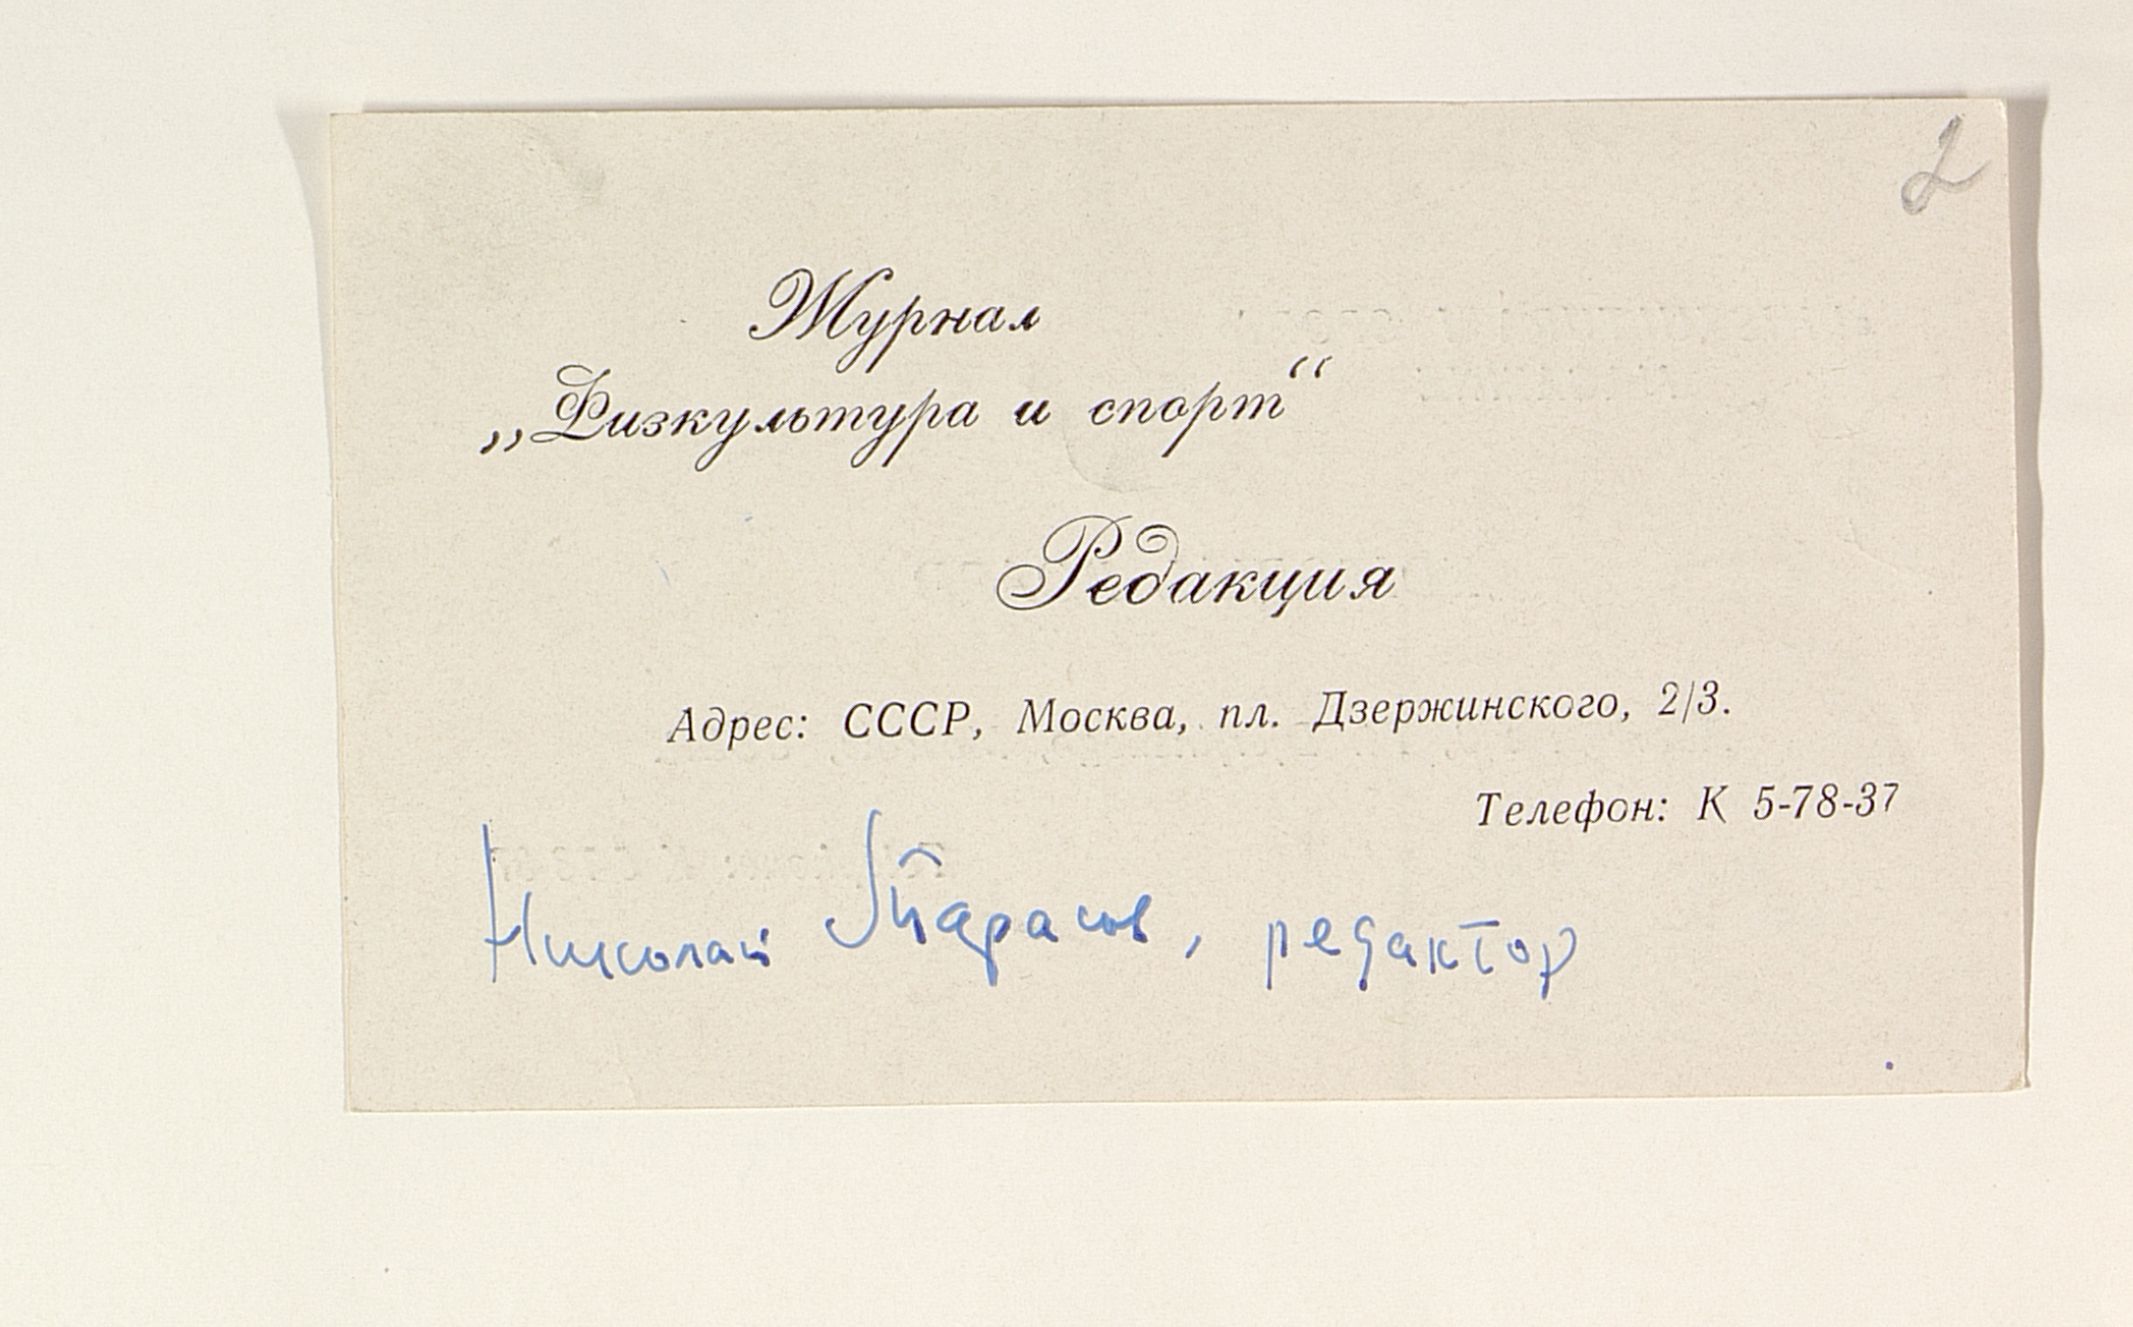 2
Журнал
„Физкультура и спорт“
Редакция
Адрес: СССР, Москва, пл. Дзержинского, 2/3.
Телефон: К 5-78-37
Николай Тарасов, редактор